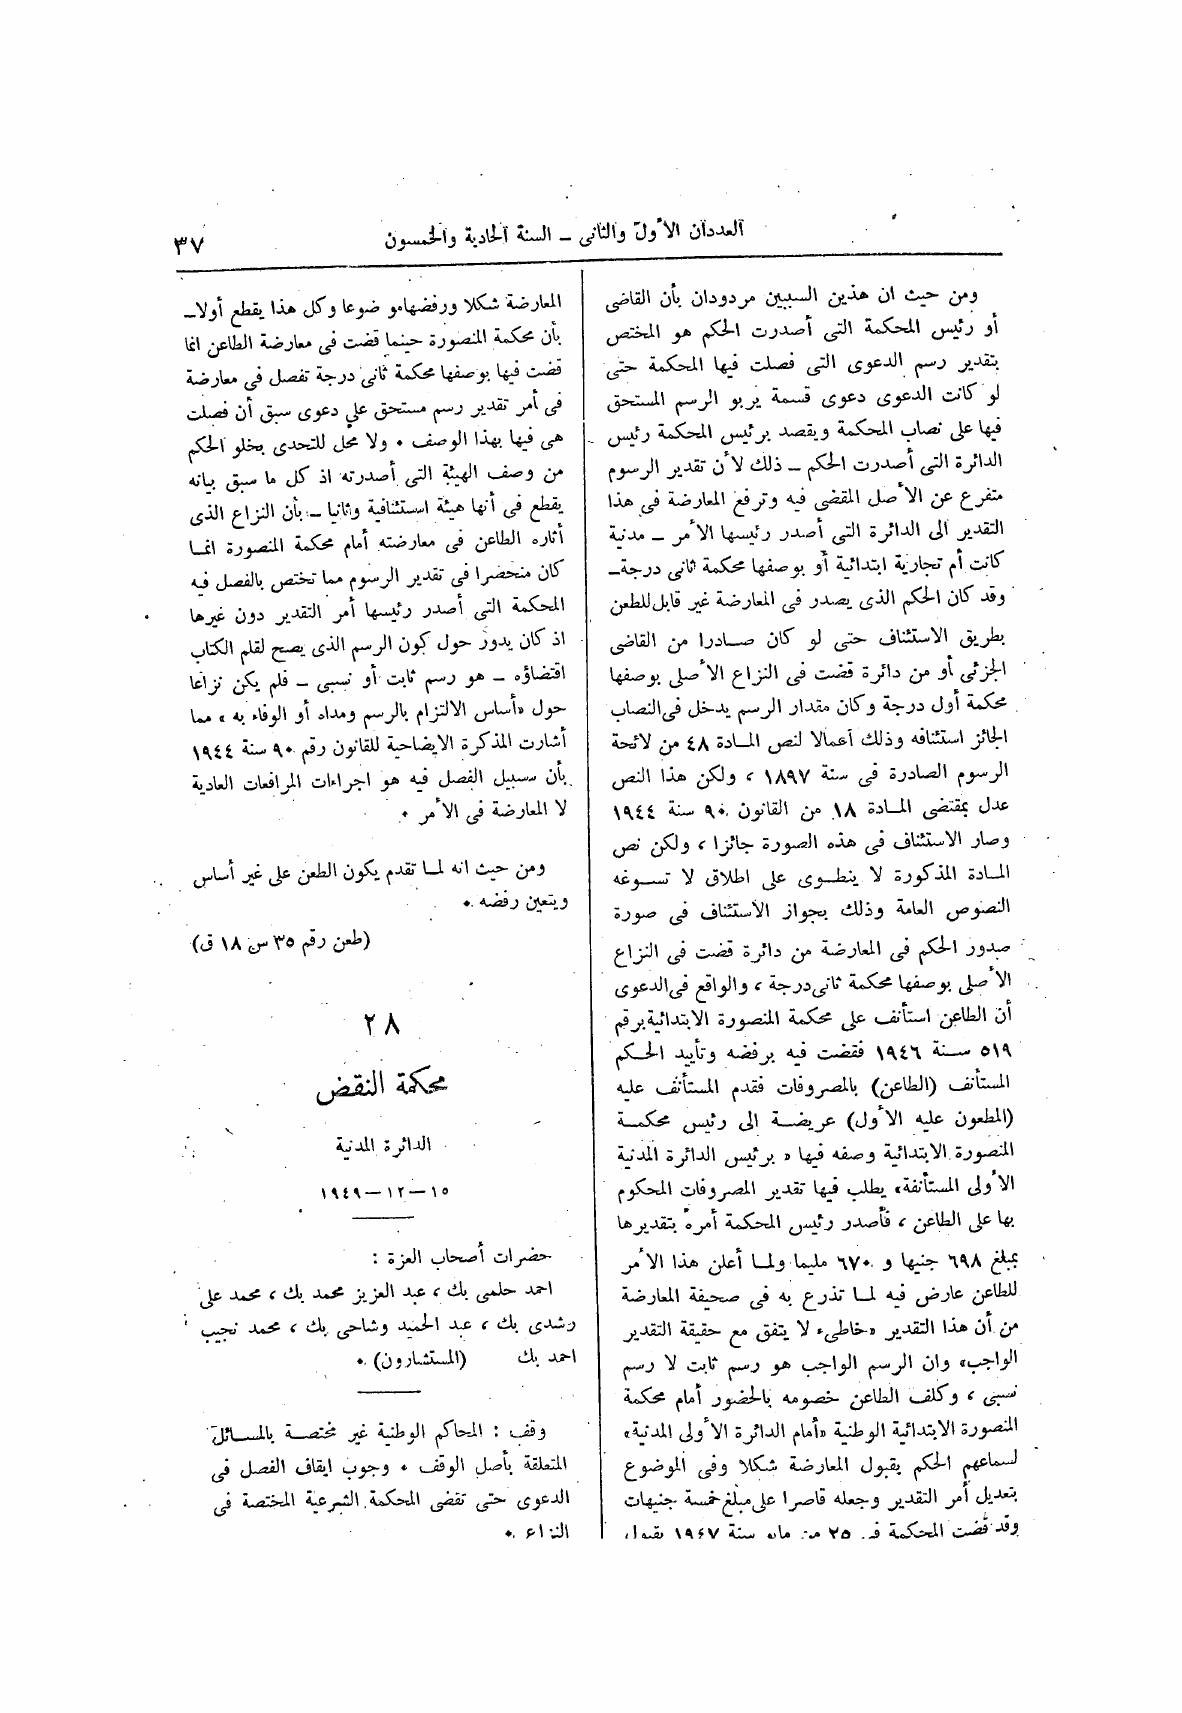 العددان الأول والثانى ــ السنة الحادية والخمسون
٣٧
ومن حيث ان هذين السببين مردودان بأن القاضى
أو رئيس المحكمة التى أصدرت الحكم هو المختص
بتقدير رسم الدعوى التى فصلت فيها المحكمة حتى
لو كانت الدعوى دعوى قسمة يربو الرسم المستحق
فيها على نصاب المحكمة ويقصد برئيس المحكمة رئيس
الدائرة التى أصدرت الحكم ــ ذلك لأن تقدير الرسوم
متفرع عن الأصل المقضى فيه وترفع المعارضة فى هذا
التقدير الى الدائرة التى أصدر رئيسها الأمر ــ مدنية
كانت أم تجارية ابتدائية أو بوصفها محكمة ثانى درجة ــ
وقد كان الحكم الذى يصدر فى المعارضة غير قابل للطعن
بطريق الاستئناف حتى لو كان صادرا من القاضى
الجزئى أو من دائرة قضت فى النزاع الأصلى بوصفها
محكمة أول درجة وكان مقدار الرسم يدخل فى النصاب
الجائز استئنافه وذلك أعمالا لنص المادة ٤٨ من لائحة
الرسوم الصادرة فى سنة ١٨٩٧ ، ولكن هذا النص
عدل بمقتضى المادة ١٨ من القانون ٩٠ سنة ١٩٤٤
وصار الاستئناف فى هذه الصورة جائزا ، ولكن نص
المادة المذكورة لا ينطوى على اطلاق لا تسوغه
النصوص العامة وذلك بجواز الاستئناف فى صورة
صدور الحكم فى المعارضة من دائرة قضت فى النزاع
الأصلى بوصفها محكمة ثانى درجة ، والواقع فى الدعوى
أن الطاعن استأنف على محكمة المنصورة الابتدائية برقم
٥١٩ سنة ١٩٤٦ فقضت فيه برفضه وتأييد الحكم
المستأنف (الطاعن) بالمصروفات فقدم المستأنف عليه
(المطعون عليه الأول) عريضة الى رئيس محكمة
المنصورة الابتدائية وصفه فيها « برئيس الدائرة المدنية
الأولى المستأنفة» يطلب فيها تقدير المصروفات المحكوم
بها على الطاعن ، فأصدر رئيس المحكمة أمره بتقديرها
بمبلغ ٦٩٨ جنيها و ٦٧٠ مليما ولما أعلن هذا الأمر
للطاعن عارض فيه لما تذرع به فى صحيفة المعارضة
من أن هذا التقدير «خاطىء لا يتفق مع حقيقة التقدير
الواجب» وان الرسم الواجب هو رسم ثابت لا رسم
نسبى ، وكلف الطاعن خصومه بالحضور أمام محكمة
المنصورة الابتدائية الوطنية «أمام الدائرة الأولى المدنية»
لسماعهم الحكم بقبول المعارضة شكلا وفى الموضوع
بتعديل أمر التقدير وجعله قاصرا على مبلغ خمسة جنيهات
وقد قضت المحكمة فى ٢٥ من مايه سنة ١٩٤٧ بقبول
المعارضة شكلا ورفضهامو ضوعا وكل هذا يقطع أولا ــ
بأن محكمة المنصورة حينما قضت فى معارضة الطاعن انما
قضت فيها بوصفها محكمة ثانى درجة تفصل فى معارضة
فى أمر تقدير رسم مستحق على دعوى سبق أن فصلت
هى فيها بهذا الوصف ٠ ولا محل للتحدى بخلو الحكم
من وصف الهيئة التى أصدرته اذ كل ما سبق بيانه
يقطع فى أنها هيئة استئنافية وثانيا ــ بأن النزاع الذى
أثاره الطاعن فى معارضته أمام محكمة المنصورة انما
كان منحصرا فى تقدير الرسوم مما تختص بالفصل فيه
المحكمة التى أصدر رئيسها أمر التقدير دون غيرها
اذ كان يدور حول كون الرسم الذى يصح لقلم الكتاب
اقتضاؤه ــ هو رسم ثابت أو نسبى ــ فلم يكن نزاعا
حول «أساس الالتزام بالرسم ومداه أو الوفاء به » مما
أشارت المذكرة الايضاحية للقانون رقم ٩٠ سنة ١٩٤٤
بأن سبيل الفصل فيه هو اجراءات المرافعات العادية
لا المعارضة فى الأمر ٠
ومن حيث انه لما تقدم يكون الطعن على غير أساس
ويتعين رفضه ٠
(طعن رقم ٣٥ س ١٨ ق)
٢٨
محكمة النقض
الدائرة المدنية
١٥ــ١٢ــ١٩٤٩
حضرات أصحاب العزة :
احمد حلمى بك ، عبد العزيز محمد بك ، محمد على
رشدى بك ، عبد الحميد وشاحى بك ، محمد نجيب
احمد بك (المستشارون) ٠
وقف : المحاكم الوطنية غير مختصة بالمسائل
المتعلقة بأصل الوقف ٠ وجوب ايقاف الفصل فى
الدعوى حتى تقضى المحكمة الشرعية المختصة فى
النزاع ٠